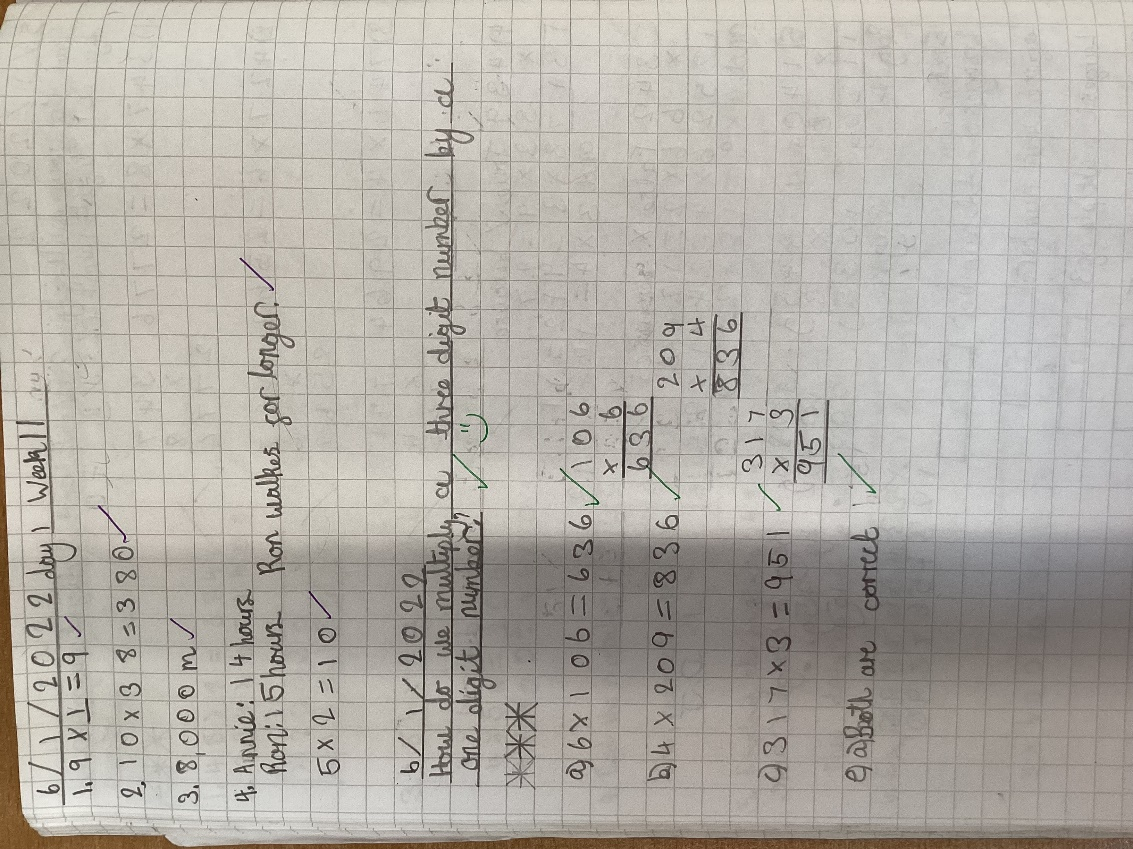 6/1/2022 day 1 Week 11
1. 9 x 1 = 9
2. 10 x 38 = 380
3. 8,000 m
4. Annie: 14 hours
Ron: 15 hours Ron walkes for longer.
5 x 2 = 10
6/1/2022
How do we multiply a three digit number by a
one digit number?
a) 6 x 106 = 636
106
x 6
636
b) 4 x 209 = 836
209
x 4
836
c) 317 x 3 = 951
317
x 3
951
Both are correct